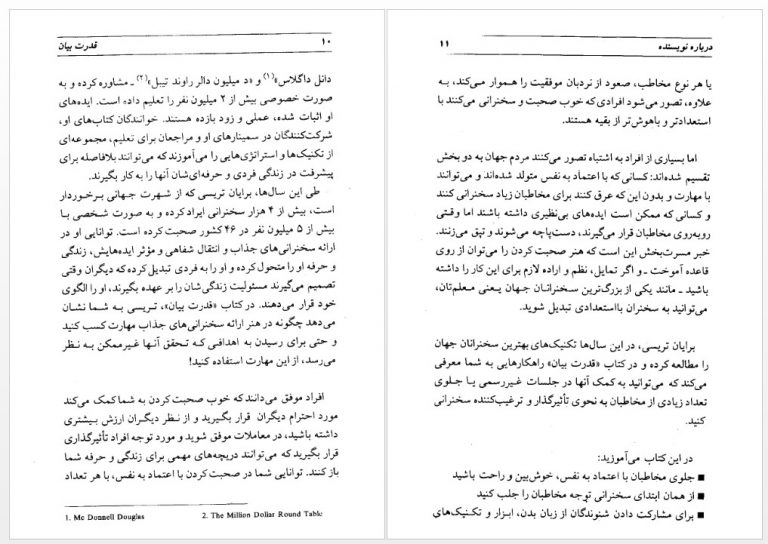 ۱۰ قدرت بیان
دانل داگلاس»(۱) و «د میلیون دالر راوند تیبل»(۲) ـ مشاوره کرده و به
صورت خصوصی بیش از ۲ میلیون نفر را تعلیم داده است. ایده‌های
او اثبات شده، عملی و زود بازده هستند. خوانندگان کتاب‌های او،
شرکت‌کنندگان در سمینارهای او و مراجعان برای تعلیم، مجموعه‌ای
از تکنیک‌ها و استراتژی‌هایی را می‌آموزند که می‌توانند بلافاصله برای
پیشرفت در زندگی فردی و حرفه‌ای‌شان آنها را به کار بگیرند.
طی این سال‌ها، برایان تریسی که از شهرت جهانی برخوردار
است، بیش از ۴ هزار سخنرانی ایراد کرده و به صورت شخصی با
بیش از ۵ میلیون نفر در ۴۶ کشور صحبت کرده است. توانایی او در
ارائه سخنرانی‌های جذاب و انتقال شفاهی و مؤثر ایده‌هایش، زندگی
و حرفه او را متحول کرده و او را به فردی تبدیل کرده که دیگران وقتی
تصمیم می‌گیرند مسئولیت زندگی‌شان را بر عهده بگیرند، او را الگوی
خود قرار می‌دهند. در کتاب «قدرت بیان»، تریسی به شما نشان
می‌دهد چگونه در هنر ارائه سخنرانی‌های جذاب مهارت کسب کنید
و حتی برای رسیدن به اهدافی که تحقق آنها غیرممکن به نظر
می‌رسد، از این مهارت استفاده کنید!
افراد موفق می‌دانند که خوب صحبت کردن به شما کمک می‌کند
مورد احترام دیگران قرار بگیرید و از نظر دیگران ارزش بیشتری
داشته باشید، در معاملات موفق شوید و مورد توجه افراد تأثیرگذاری
قرار بگیرید که می‌توانند دریچه‌های مهمی برای زندگی و حرفه شما
باز کنند. توانایی شما در صحبت کردن با اعتماد به نفس، با هر تعداد
1. Mc Donnell Douglas 2. The Million Dollar Round Table
درباره نویسنده ۱۱
یا هر نوع مخاطب، صعود از نردبان موفقیت را هموار می‌کند، به
علاوه، تصور می‌شود افرادی که خوب صحبت و سخنرانی می‌کنند با
استعدادتر و باهوش‌تر از بقیه هستند.
اما بسیاری از افراد به اشتباه تصور می‌کنند مردم جهان به دو بخش
تقسیم شده‌اند: کسانی که با اعتماد به نفس متولد شده‌اند و می‌توانند
با مهارت و بدون این که عرق کنند برای مخاطبان زیاد سخنرانی کنند
و کسانی که ممکن است ایده‌های بی‌نظیری داشته باشند اما وقتی
روبه‌روی مخاطبان قرار می‌گیرند، دست‌پاچه می‌شوند و تپق می‌زنند.
خبر مسرت‌بخش این است که هنر صحبت کردن را می‌توان از روی
قاعده آموخت ـ و اگر تمایل، نظم و اراده لازم برای این کار را داشته
باشید ـ مانند یکی از بزرگ‌ترین سخنرانان جهان یعنی معلم‌تان،
می‌توانید به سخنران بااستعدادی تبدیل شوید.
برایان تریسی، در این سال‌ها تکنیک‌های بهترین سخنرانان جهان
را مطالعه کرده و در کتاب «قدرت بیان» راهکارهایی به شما معرفی
می‌کند که می‌توانید به کمک آنها در جلسات غیررسمی یا جلوی
تعداد زیادی از مخاطبان به نحوی تأثیرگذار و ترغیب‌کننده سخنرانی
کنید.
در این کتاب می‌آموزید:
■ جلوی مخاطبان با اعتماد به نفس، خوش‌بین و راحت باشید
■ از همان ابتدای سخنرانی توجه مخاطبان را جلب کنید
■ برای مشارکت دادن شنوندگان از زبان بدن، ابزار و تکنیک‌های